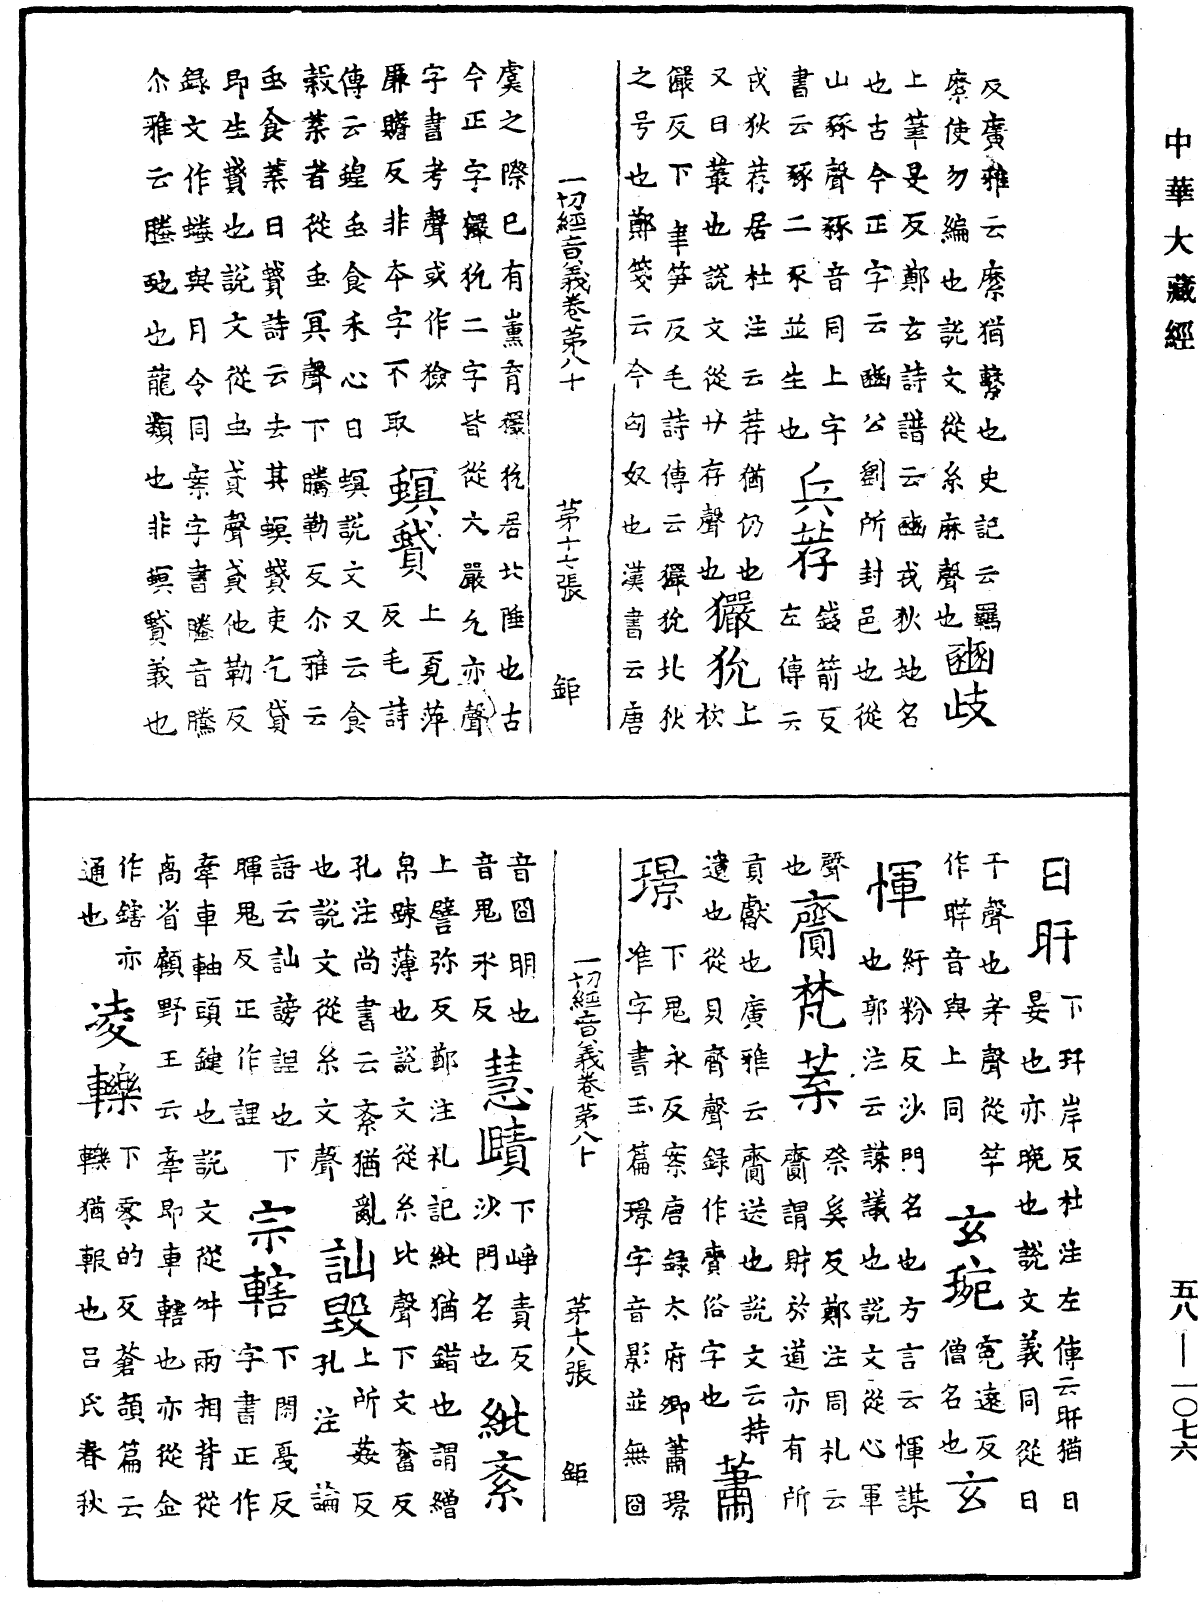 中華大藏經
反廣雅云縻猶繫也史記云羈
縻使勿編也說文從糸麻聲也豳歧
上筆旻反鄭玄詩譜云豳戎狄地名
也古今正字云豳公劉所封邑也從
山豩聲豩音同上字
書云豩二豕並生也兵荐錢箭反左傳云
戎狄荐居杜注云荐猶仍也
又曰藂也說文從廾存聲也玁狁上
巖反下聿笋反毛詩傳云玁狁北狄
之号也鄭箋云今匈奴也漢書云唐
一切經音義卷第八十 第十七張 鉅
虞之際已有薰育玁狁居北陲也古
今正字玁狁二字皆從犬嚴允亦聲
字書考聲或作獫
螟蟘上覓萍反毛詩
傳云蝗虫食禾心曰螟說文又云食
穀葉者從虫冥聲下騰勒反尒雅云
虫食葉曰蟘詩云去其螟蟘吏乞貸
即生蟘也說文從虫貣聲貣他勒反
錄文作螣與月令同案字書螣音騰
尒雅云螣虵也龍類也非螟蟘義也
日旰下玕岸反杜注左傳云旰猶日
晏也亦晚也說文義同從日
干聲也
玄琬宛遠反僧名也玄
惲紆粉反沙門名也方言云惲謀
也郭注云謀議也說文從心軍
聲
齎梵葉祭奚反鄭注周礼云
齎謂財於道亦有所
貢獻也廣雅云齎送也說文云持
遺也從貝齊聲錄作賫俗字也蕭
璟下鬼永反案唐錄太府卿蕭璟
准字書玉篇璟字音影並無囧
一切經音義卷第八十 第十八張 鉅
音囧明也
音鬼永反慧賾下崢責反沙門名也紕紊
上譬弥反鄭注礼記紕猶錯也謂繒
帛踈薄也說文從糸比聲下文奮反
孔注尚書云紊猶亂
也說文從糸文聲訕毀上所姦反孔注論
語云訕謗詛也下
暉鬼反正作諻
宗轄下閑戞反字書正作
舝車軸頭鍵也說文從舛兩相背從
卨省顧野王云舝即車轄也亦從金
作鎋亦
凌轢下零的反蒼頡篇云
轢猶報也呂氏春秋
通也
五八—一〇七六